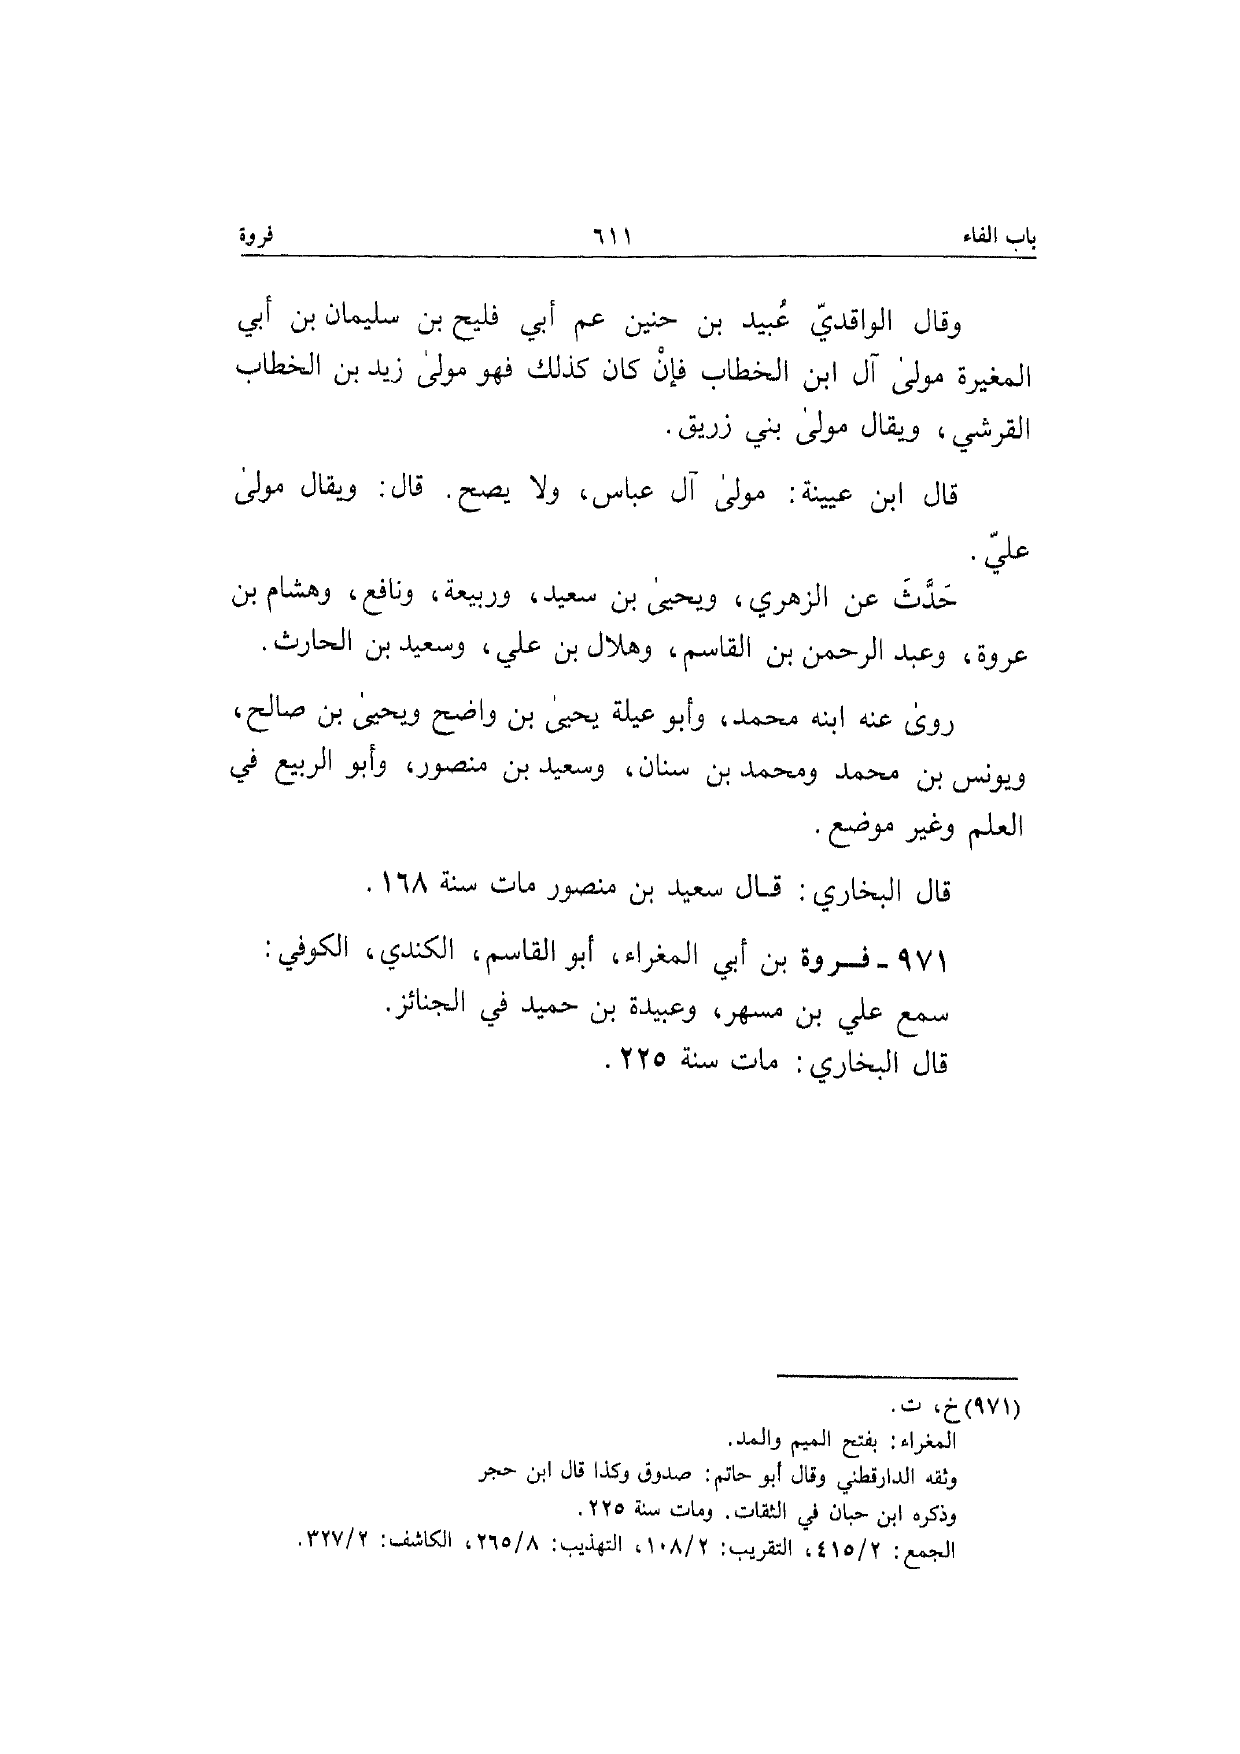 باب الفاء ٦١١ فروة
وقال الواقديّ عُبيد بن حنين عم أبي فليح بن سليمان بن أبي
المغيرة مولىٰ آل ابن الخطاب فإنْ كان كذلك فهو مولىٰ زيد بن الخطاب
القرشي، ويقال مولىٰ بني زريق.
قال ابن عيينة: مولىٰ آل عباس، ولا يصح. قال: ويقال مولىٰ
عليّ.
حَدَّثَ عن الزهري، ويحيىٰ بن سعيد، وربيعة، ونافع، وهشام بن
عروة، وعبد الرحمن بن القاسم، وهلال بن علي، وسعيد بن الحارث.
روىٰ عنه ابنه محمد، وأبو عيلة يحيىٰ بن واضح ويحيىٰ بن صالح،
ويونس بن محمد ومحمد بن سنان، وسعيد بن منصور، وأبو الربيع في
العلم وغير موضع.
قال البخاري: قال سعيد بن منصور مات سنة ١٦٨.
٩٧١ - فروة بن أبي المغراء، أبو القاسم، الكندي، الكوفي:
سمع علي بن مسهر، وعبيدة بن حميد في الجنائز.
قال البخاري: مات سنة ٢٢٥.
(٩٧١) خ، ت.
المغراء: بفتح الميم والمد.
وثقه الدارقطني وقال أبو حاتم: صدوق وكذا قال ابن حجر
وذكره ابن حبان في الثقات. ومات سنة ٢٢٥.
الجمع: ٤١٥/٢، التقريب: ١٠٨/٢، التهذيب: ٢٦٥/٨، الكاشف: ٣٢٧/٢.